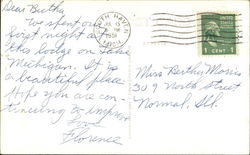 Dear Bertha,
We spent our
first night at
this lodge on Lake
Michigan. It is
a beautiful place
Hope you are con-
tinuing to improve
Love
Florence
SOUTH HAVEN
1951
1 CENT 1
Miss Bertha Morris
309 North Street
Normal, Ill.